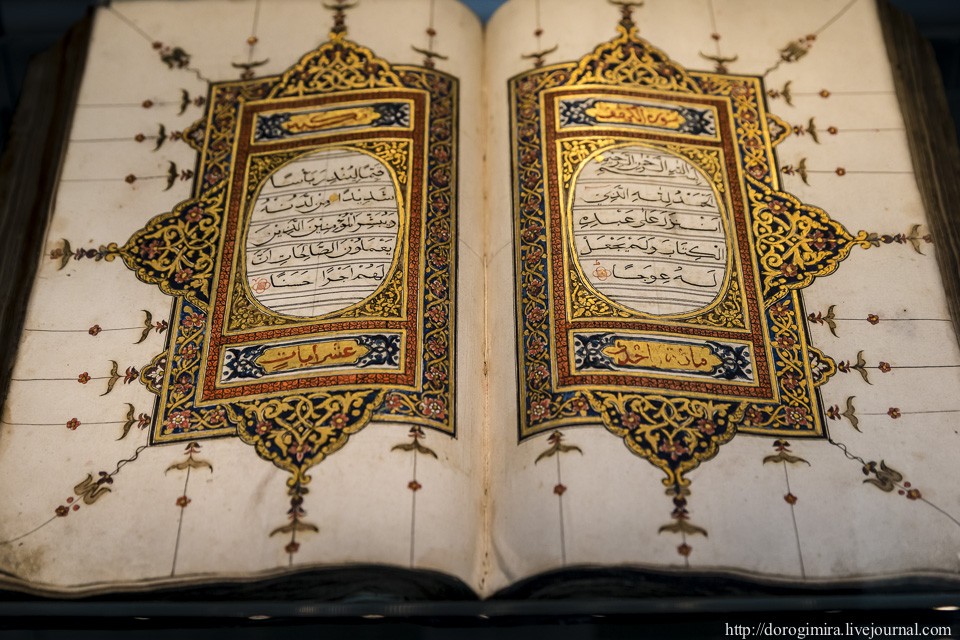 سورة الكهف
بسم الله الرحمن الرحيم
الحمد لله الذي
انزل على عبده
الكتاب ولم يجعل
له عوجا
مائة احدى
قيما لينذر باسا
شديدا من لدنه
ويبشر المؤمنين الذين
يعملون الصالحات ان
لهم اجرا حسنا
عشر ايات
http://dorogimira.livejournal.com